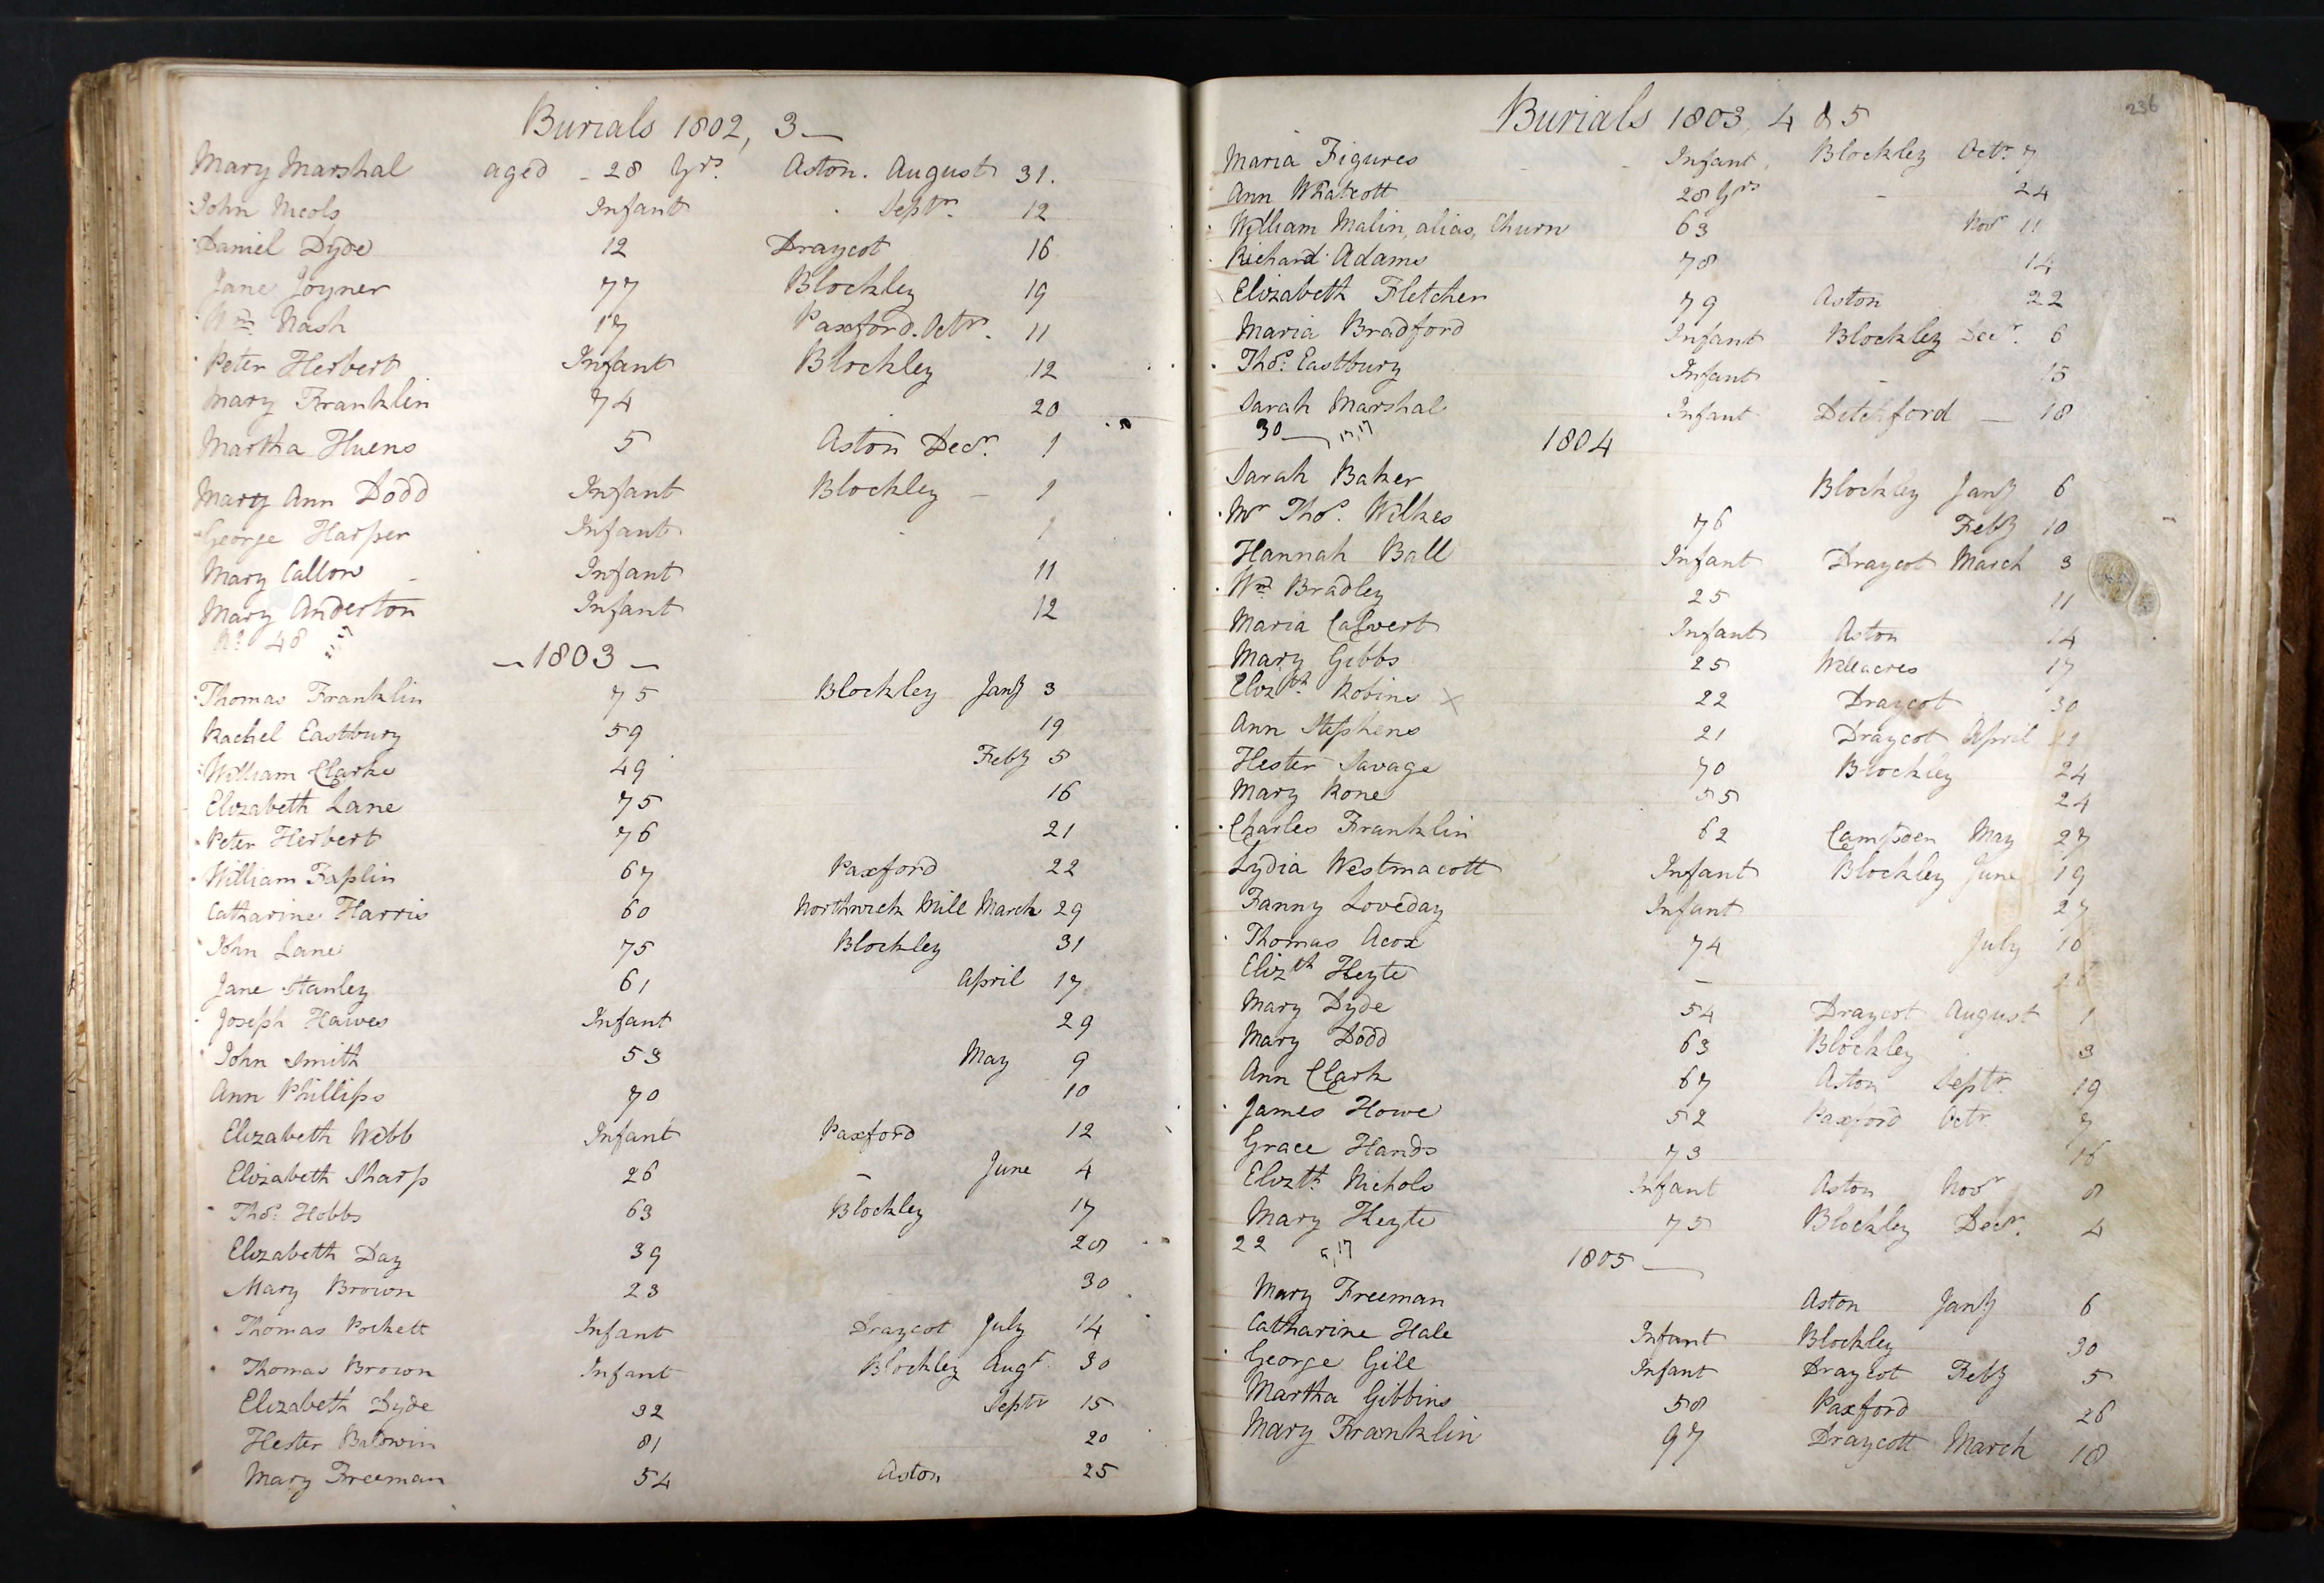 Burials 1802, 3—
Mary Marshal aged - 28 Yrs. Aston. August 31.
John Nicols Infant Septr. 12
Daniel Dyde 12 Draycot 16
Jane Joyner 77 Blockley 19
Wm. Nash 17 Paxford. Octr. 11
Peter Herbert Infant Blockley 12
Mary Franklin 74 20
Martha Huens 5 Aston Decr. 1
Mary Ann Dodd Infant Blockley — 1
George Harper Infant 1
Mary Callow Infant 11
Mary Anderton Infant 12
No. 48
— 1803 —
Thomas Franklin 75 Blockley Jany 3
Rachel Eastbury 59 19
William Clarke 49 Feby 5
Elizabeth Lane 75 16
Peter Herbert 76 21
William Taplin 67 Paxford 22
Catharine Harris 60 Northwick Mill March 29
John Lane 75 Blockley 31
Jane Stanley 61 April 17
Joseph Hawes Infant 29
John Smith 53 May 9
Ann Phillips 70 10
Elizabeth Webb Infant Paxford 12
Elizabeth Sharp 26 — June 4
Thos. Hobbs 63 Blockley 17
Elizabeth Day 39 28
Mary Brown 23 30
Thomas Pockett Infant Draycot July 14
Thomas Brown Infant Blockley Augt. 30
Elizabeth Dyde 32 Septr 15
Hester Baldwin 81 20
Mary Freeman 54 Aston 25
236
Burials 1803, 4 & 5
Maria Figures Infant, Blockley Octr. 7
Ann Whatcott 28 Yrs — 24
William Malin, alias, Churn 63 Novr 11
Richard Adams 78 14
Elizabeth Fletcher 79 Aston 22
Maria Bradford Infant Blockley Decr. 6
Thos. Eastbury Infant — 15
Sarah Marshal Infant Ditchford — 18
30—
1804
Sarah Baker Blockley Jany 6
Mr Thos. Wilkes 76 Feby 10
Hannah Ball Infant Draycot March 3
Wm Bradley 25 11
Maria Calvert Infant Aston 14
Mary Gibbs 25 Wellacres 17
Elizth. Robins x 22 Draycot 30
Ann Stephens 21 Draycot April
Hester Savage 70 Blockley 24
Mary Rone 55 24
Charles Franklin 62 Campden May 27
Lydia Westmacott Infant Blockley June 19
Fanny Loveday Infant 27
Thomas Acox 74 July 16
Elizth Heyte —
Mary Dyde 54 Draycot August 1
Mary Dodd 63 Blockley 3
Ann Clark 67 Aston Septr. 19
James Howe 52 Paxford Octr. 7
Grace Hands 73 16
Elizth. Nichols Infant Aston Novr 8
Mary Heyte 75 Blockley Decr. 4
22
1805 —
Mary Freeman Aston Jany 6
Catharine Hale Infant Blockley 30
George Gill Infant Draycot Feby 5
Martha Gibbins 58 Paxford 26
Mary Franklin 97 Draycott March 18